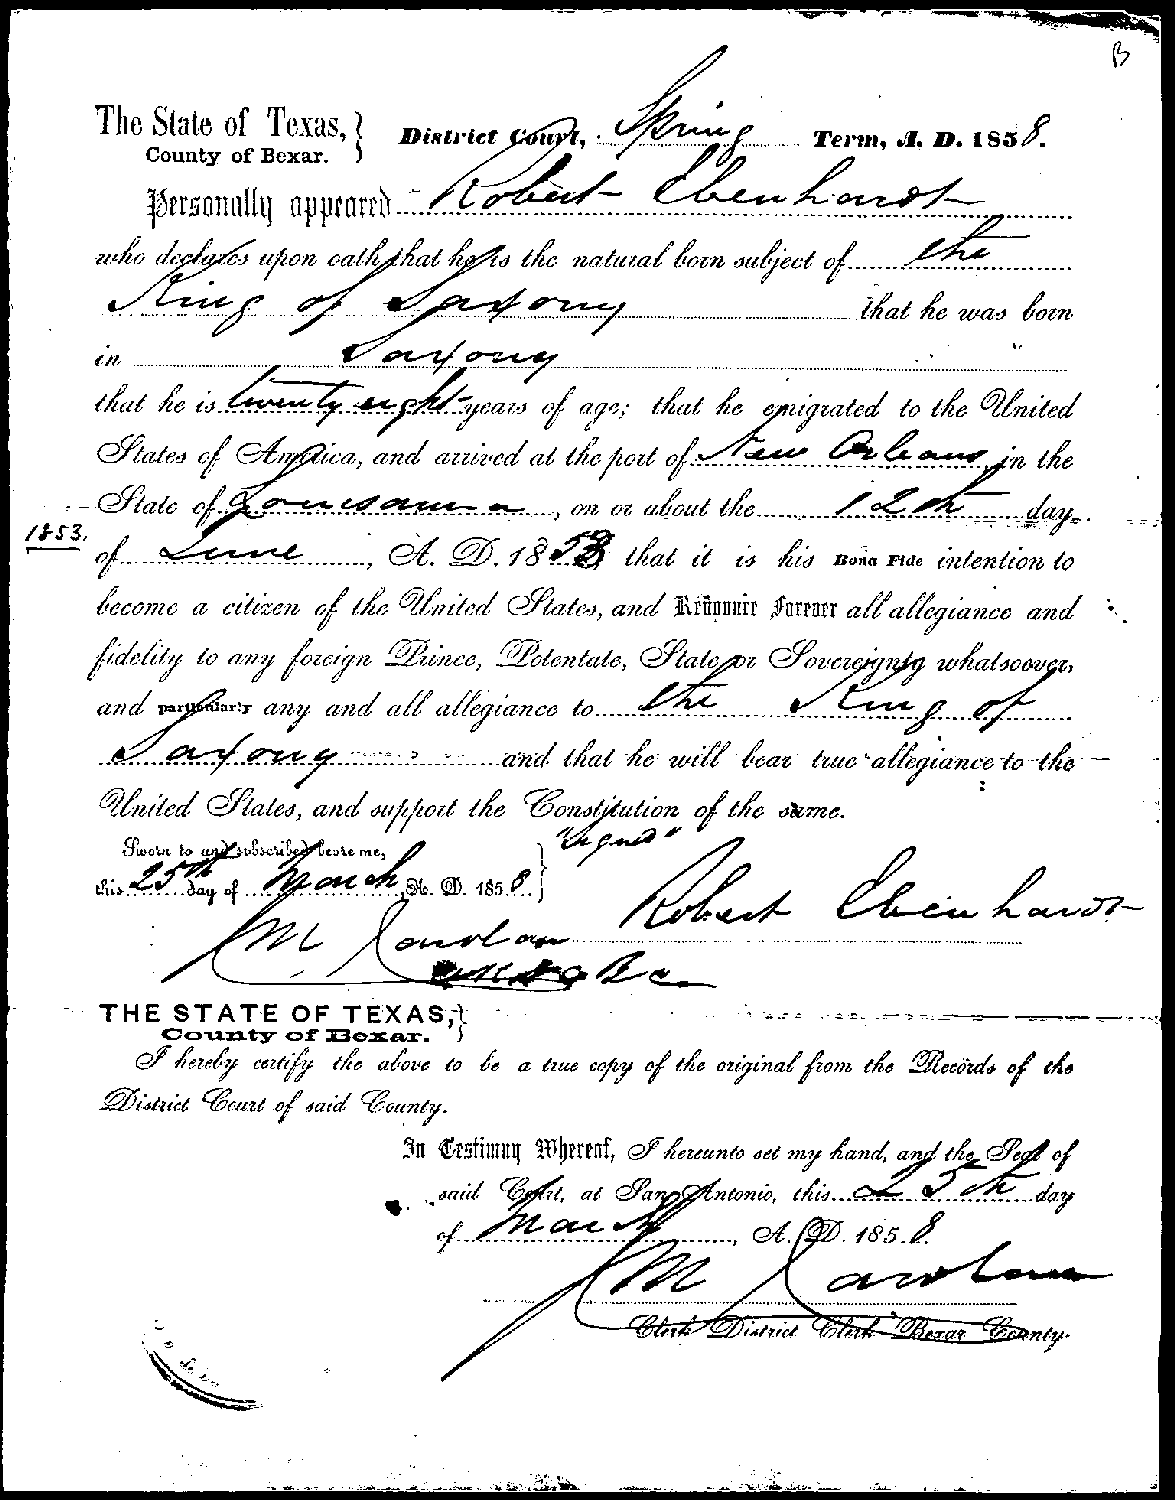 B
The State of Texas, } District Court, Spring Term, A. D. 1858.
County of Bexar.
Personally appeared Robert Ebenhardt
who declares upon oath that he is the natural born subject of the
King of Saxony that he was born
in Saxony "
that he is twenty eight years of age; that he emigrated to the United
States of America, and arrived at the port of New Orleans in the
State of Louisiana, on or about the 12th day
1853.
of June, A. D. 1853, that it is his Bona Fide intention to
become a citizen of the United States, and Renounce Forever all allegiance and
fidelity to any foreign Prince, Potentate, State or Sovereignty whatsoever,
and particularly any and all allegiance to the King of
Saxony and that he will bear true allegiance to the
United States, and support the Constitution of the same.
Sworn to and subscribed before me, } "Signed"
this 25th day of March, A. D. 1858.
Robert Ebenhardt
M
THE STATE OF TEXAS, }
County of Bexar.
I hereby certify the above to be a true copy of the original from the Records of the
District Court of said County.
In Testimny Whereof, I hereunto set my hand, and the Seal of
said Court, at San Antonio, this 25th day
of March, A. D. 1858.
M
Clerk District Clerk Bexar County.